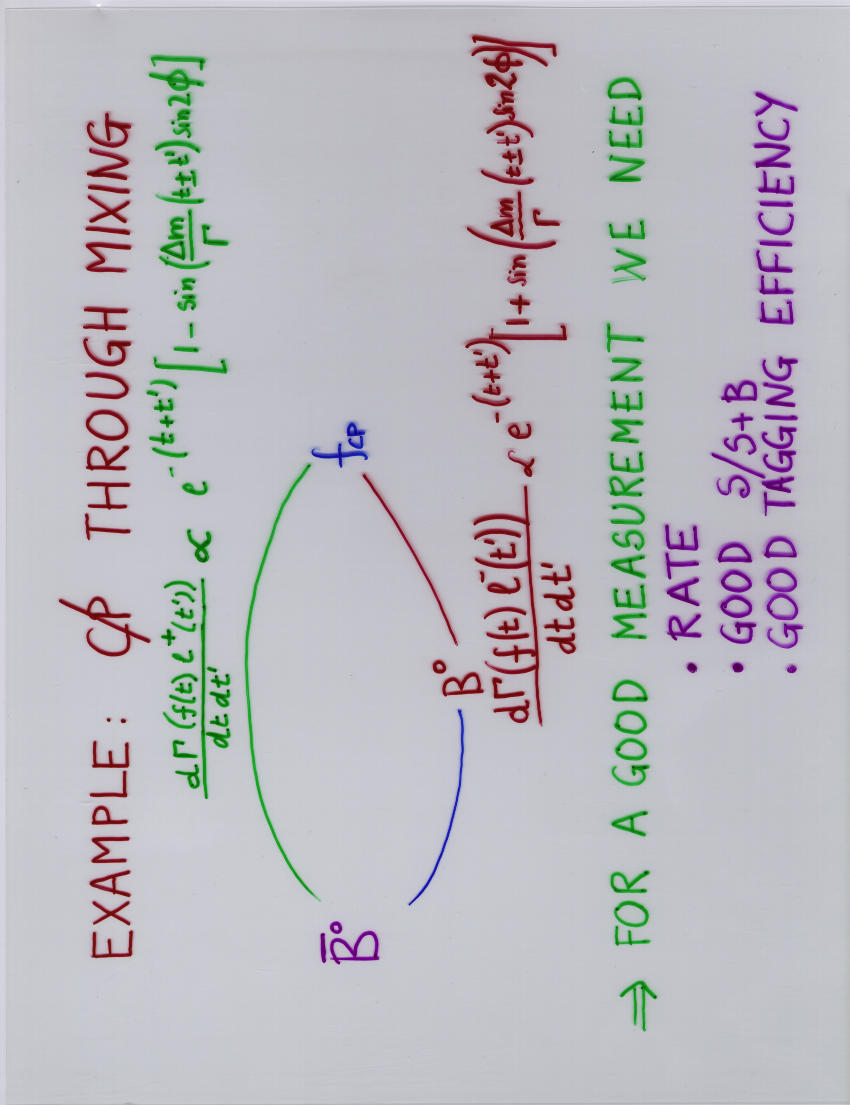 EXAMPLE: C̸P THROUGH MIXING
dΓ(f(t) l⁺(t'))/dt dt' ∝ e^-(t+t') [1 - sin(Δm/Γ (t±t') sin2ϕ]
B̄° f_CP
B°
dΓ(f(t) l⁻(t'))/dt dt' ∝ e^-(t+t') [1 + sin(Δm/Γ (t±t') sin2ϕ)]
⇒ FOR A GOOD MEASUREMENT WE NEED
• RATE
• GOOD S/S+B
• GOOD TAGGING EFFICIENCY